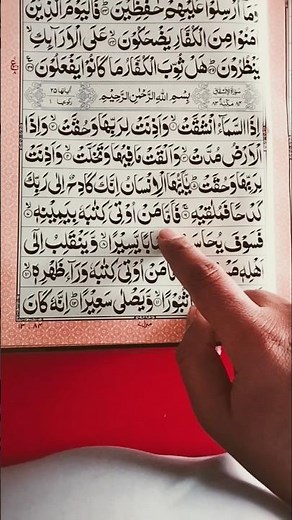 مَاۤ اُرْسِلُوْا عَلَيْهِمْ حٰفِظِيْنَ فَالْيَوْمَ الَّذِيْنَ
مَنُوْا مِنَ الْكُفَّارِ يَضْحَكُوْنَ عَلَى الْاَرَآئِكِ
يَنْظُرُوْنَ هَلْ ثُوِّبَ الْكُفَّارُ مَا كَانُوْا يَفْعَلُوْنَ
بِسْمِ اللّٰهِ الرَّحْمٰنِ الرَّحِيْمِ
اِذَا السَّمَآءُ انْشَقَّتْ وَاَذِنَتْ لِرَبِّهَا وَحُقَّتْ وَاِذَا
الْاَرْضُ مُدَّتْ وَاَلْقَتْ مَا فِيْهَا وَتَخَلَّتْ وَاَذِنَتْ
لِرَبِّهَا وَحُقَّتْ يٰۤاَيُّهَا الْاِنْسَانُ اِنَّكَ كَادِحٌ اِلٰى رَبِّكَ
كَدْحًا فَمُلٰقِيْهِ فَاَمَّا مَنْ اُوْتِيَ كِتٰبَهٗ بِيَمِيْنِهٖ
فَسَوْفَ يُحَاسَ بًا يَّسِيْرًا وَّيَنْقَلِبُ اِلٰٓى
اَهْلِهٖ مَنْ اُوْتِيَ كِتٰبَهٗ وَرَآءَ ظَهْرِهٖ
ثُبُوْرًا وَّيَصْلٰى سَعِيْرًا اِنَّهٗ كَانَ